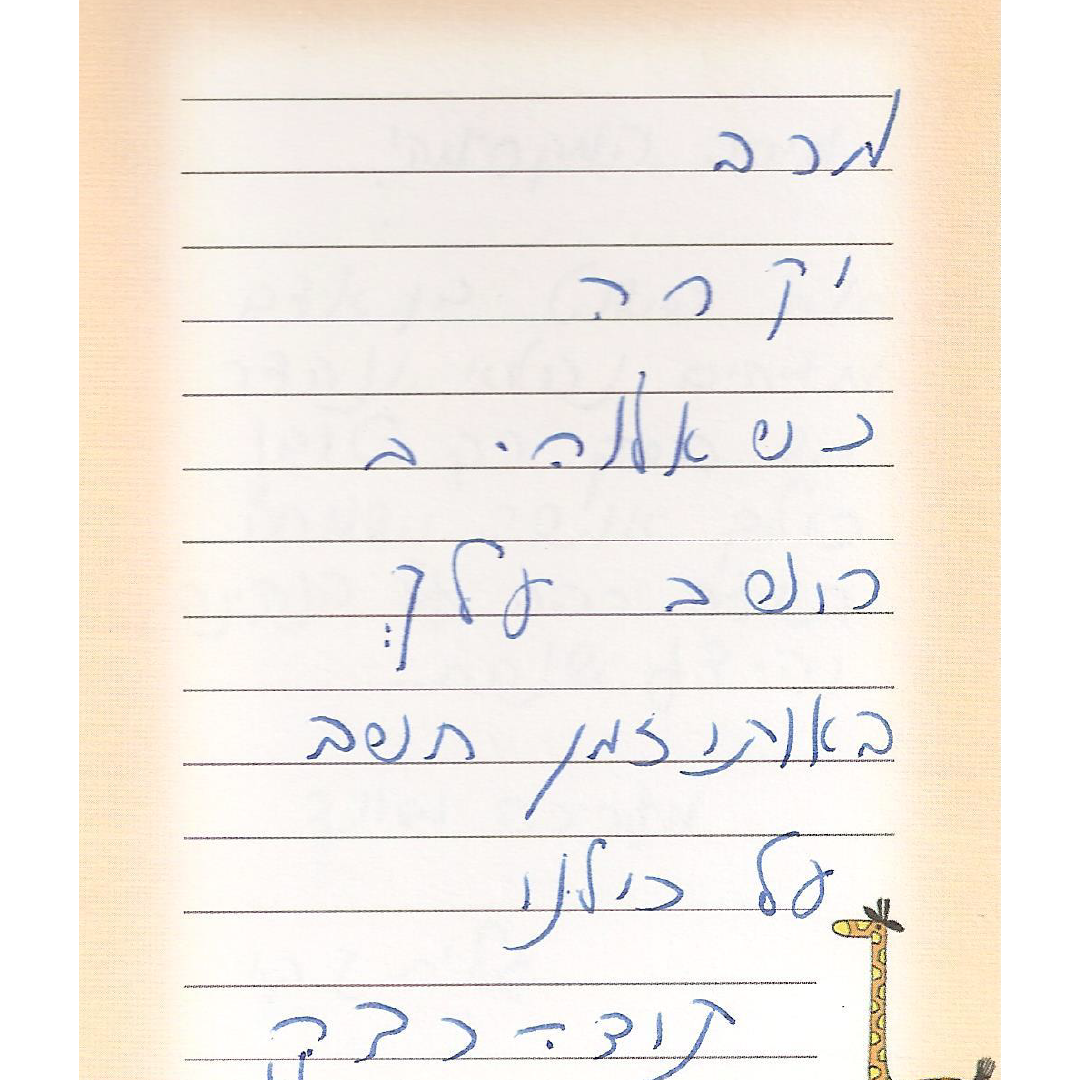 מכב
יקרה
כש אלוהי ב
כושב עלך:
באותו זמן חשב
על כולנו
תודה